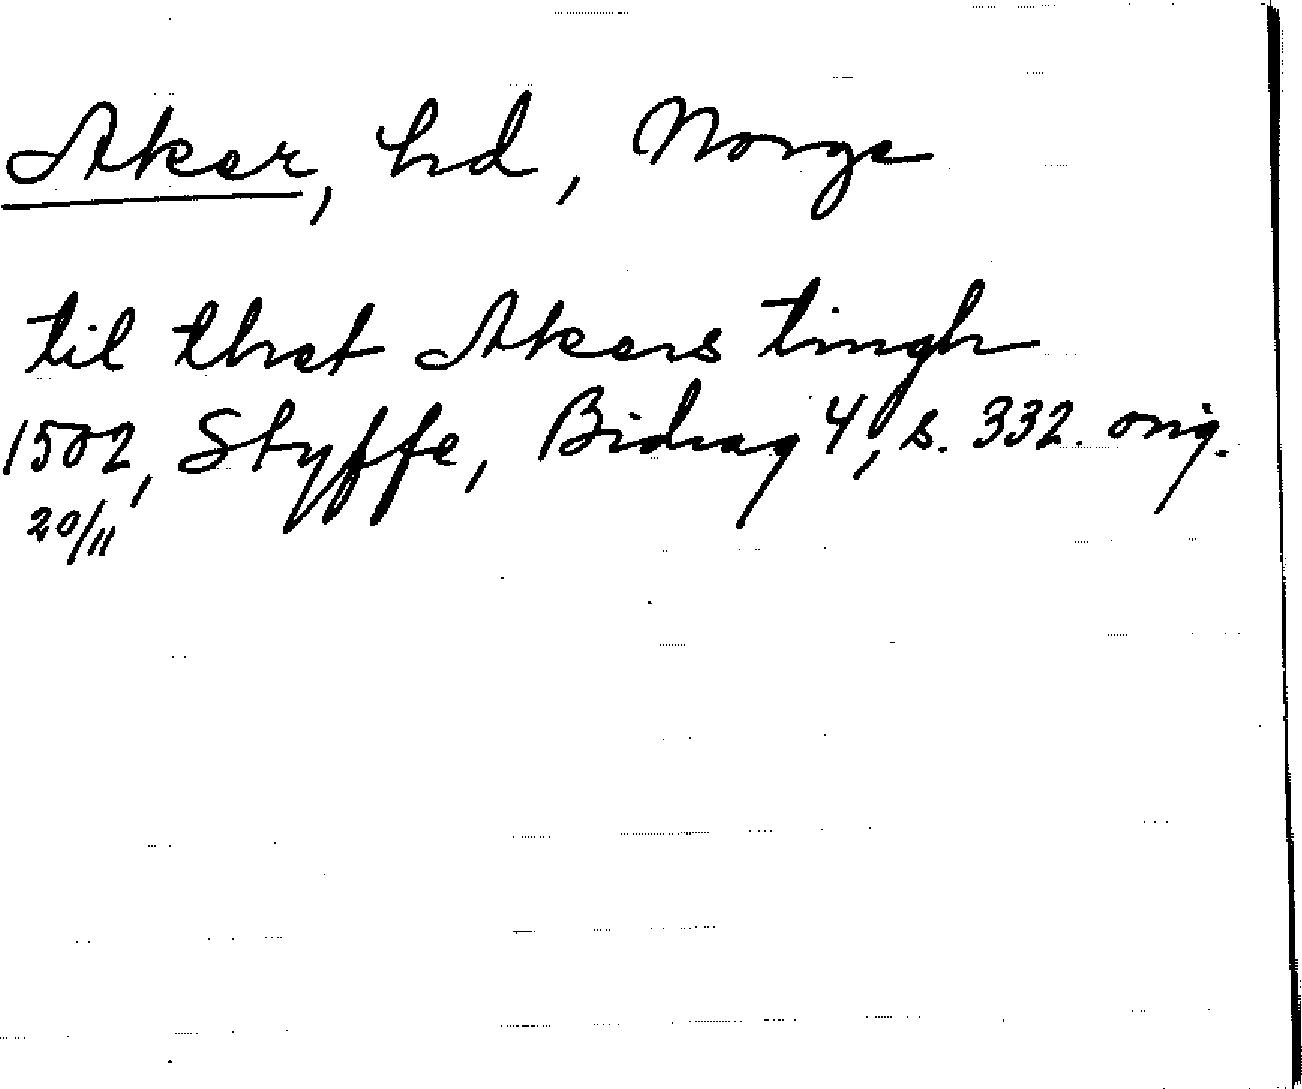 Aker, hd, Norge
til thet Akers tingh
1502, Styffe, Bidrag 4, s. 332. orig.
20/11